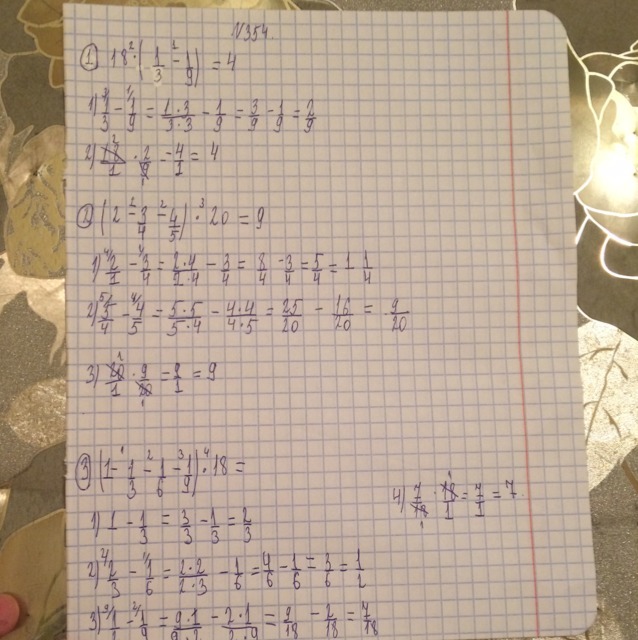 №354.
① 18 · (1/3 - 1/9) = 4
1) 1/3 - 1/9 = 1·3/3·3 - 1/9 = 3/9 - 1/9 = 2/9
2) 18/1 · 2/9 = 4/1 = 4
② (2 - 3/4 - 4/5) · 20 = 9
1) 2/1 - 3/4 = 2·4/1·4 - 3/4 = 8/4 - 3/4 = 5/4 = 1 1/4
2) 5/4 - 4/5 = 5·5/5·4 - 4·4/4·5 = 25/20 - 16/20 = 9/20
3) 20/1 · 9/20 = 9/1 = 9
③ (1 - 1/3 - 1/6 - 1/9) · 18 =
1) 1 - 1/3 = 3/3 - 1/3 = 2/3
2) 2/3 - 1/6 = 2·2/2·3 - 1/6 = 4/6 - 1/6 = 3/6 = 1/2
3) 1/2 - 1/9 = 9·1/9·2 - 2·1/2·9 = 9/18 - 2/18 = 7/18
4) 7/18 · 18/1 = 7/1 = 7